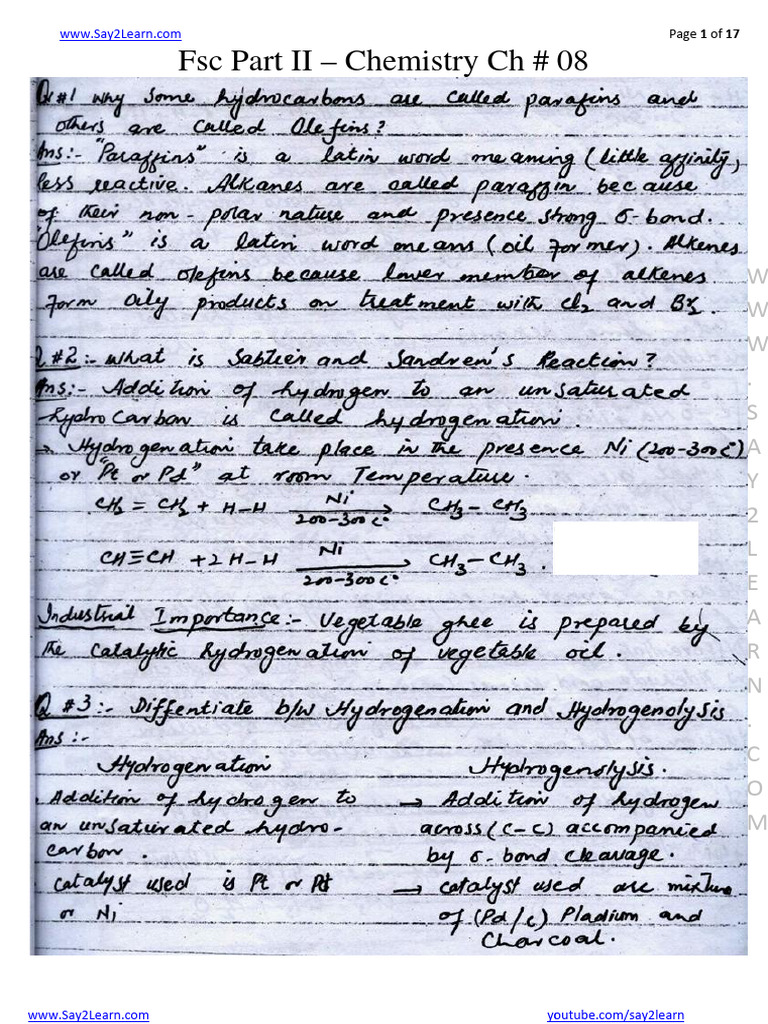 www.Say2Learn.com
Page 1 of 17
Fsc Part II – Chemistry Ch # 08
Q#1 Why some hydrocarbons are called parafins and
others are called Olefins?
Ans:- "Paraffins" is a latin word meaning (little affinity,
less reactive. Alkanes are called paraffin because
of their non-polar nature and presence strong σ-bond.
"Olefins" is a latin word means (oil former). Alkenes
are called olefins because lower member of alkenes
form oily products on treatment with Cl₂ and Br₂.
Q #2:- What is Sabtier and Sandren's Reaction?
Ans:- Addition of hydrogen to an unsaturated
hydrocarbon is called hydrogenation.
→ Hydrogenation take place in the presence Ni (200-300C°)
or "Pt or Pd" at room Temperature.
CH₂ = CH₂ + H-H Ni 200-300C° → CH₃-CH₃
CH≡CH + 2H-H Ni 200-300C° → CH₃-CH₃.
Industrial Importance:- Vegetable ghee is prepared by
the catalytic hydrogenation of vegetable oil.
Q #3:- Diffentiate b/w Hydrogenation and Hydrogenolysis
Ans:-
Hydrogenation
Addition of hydrogen to
an unsaturated hydro-
carbon.
catalyst used is Pt or Pd
or Ni
Hydrogenolysis.
→ Addition of hydrogen
across (C-C) accompanied
by σ-bond cleavage.
→ catalyst used are mixture
of (Pd/C) Pladium and
Charcoal.
WWW.SAY2LEARN.COM
www.Say2Learn.com
youtube.com/say2learn